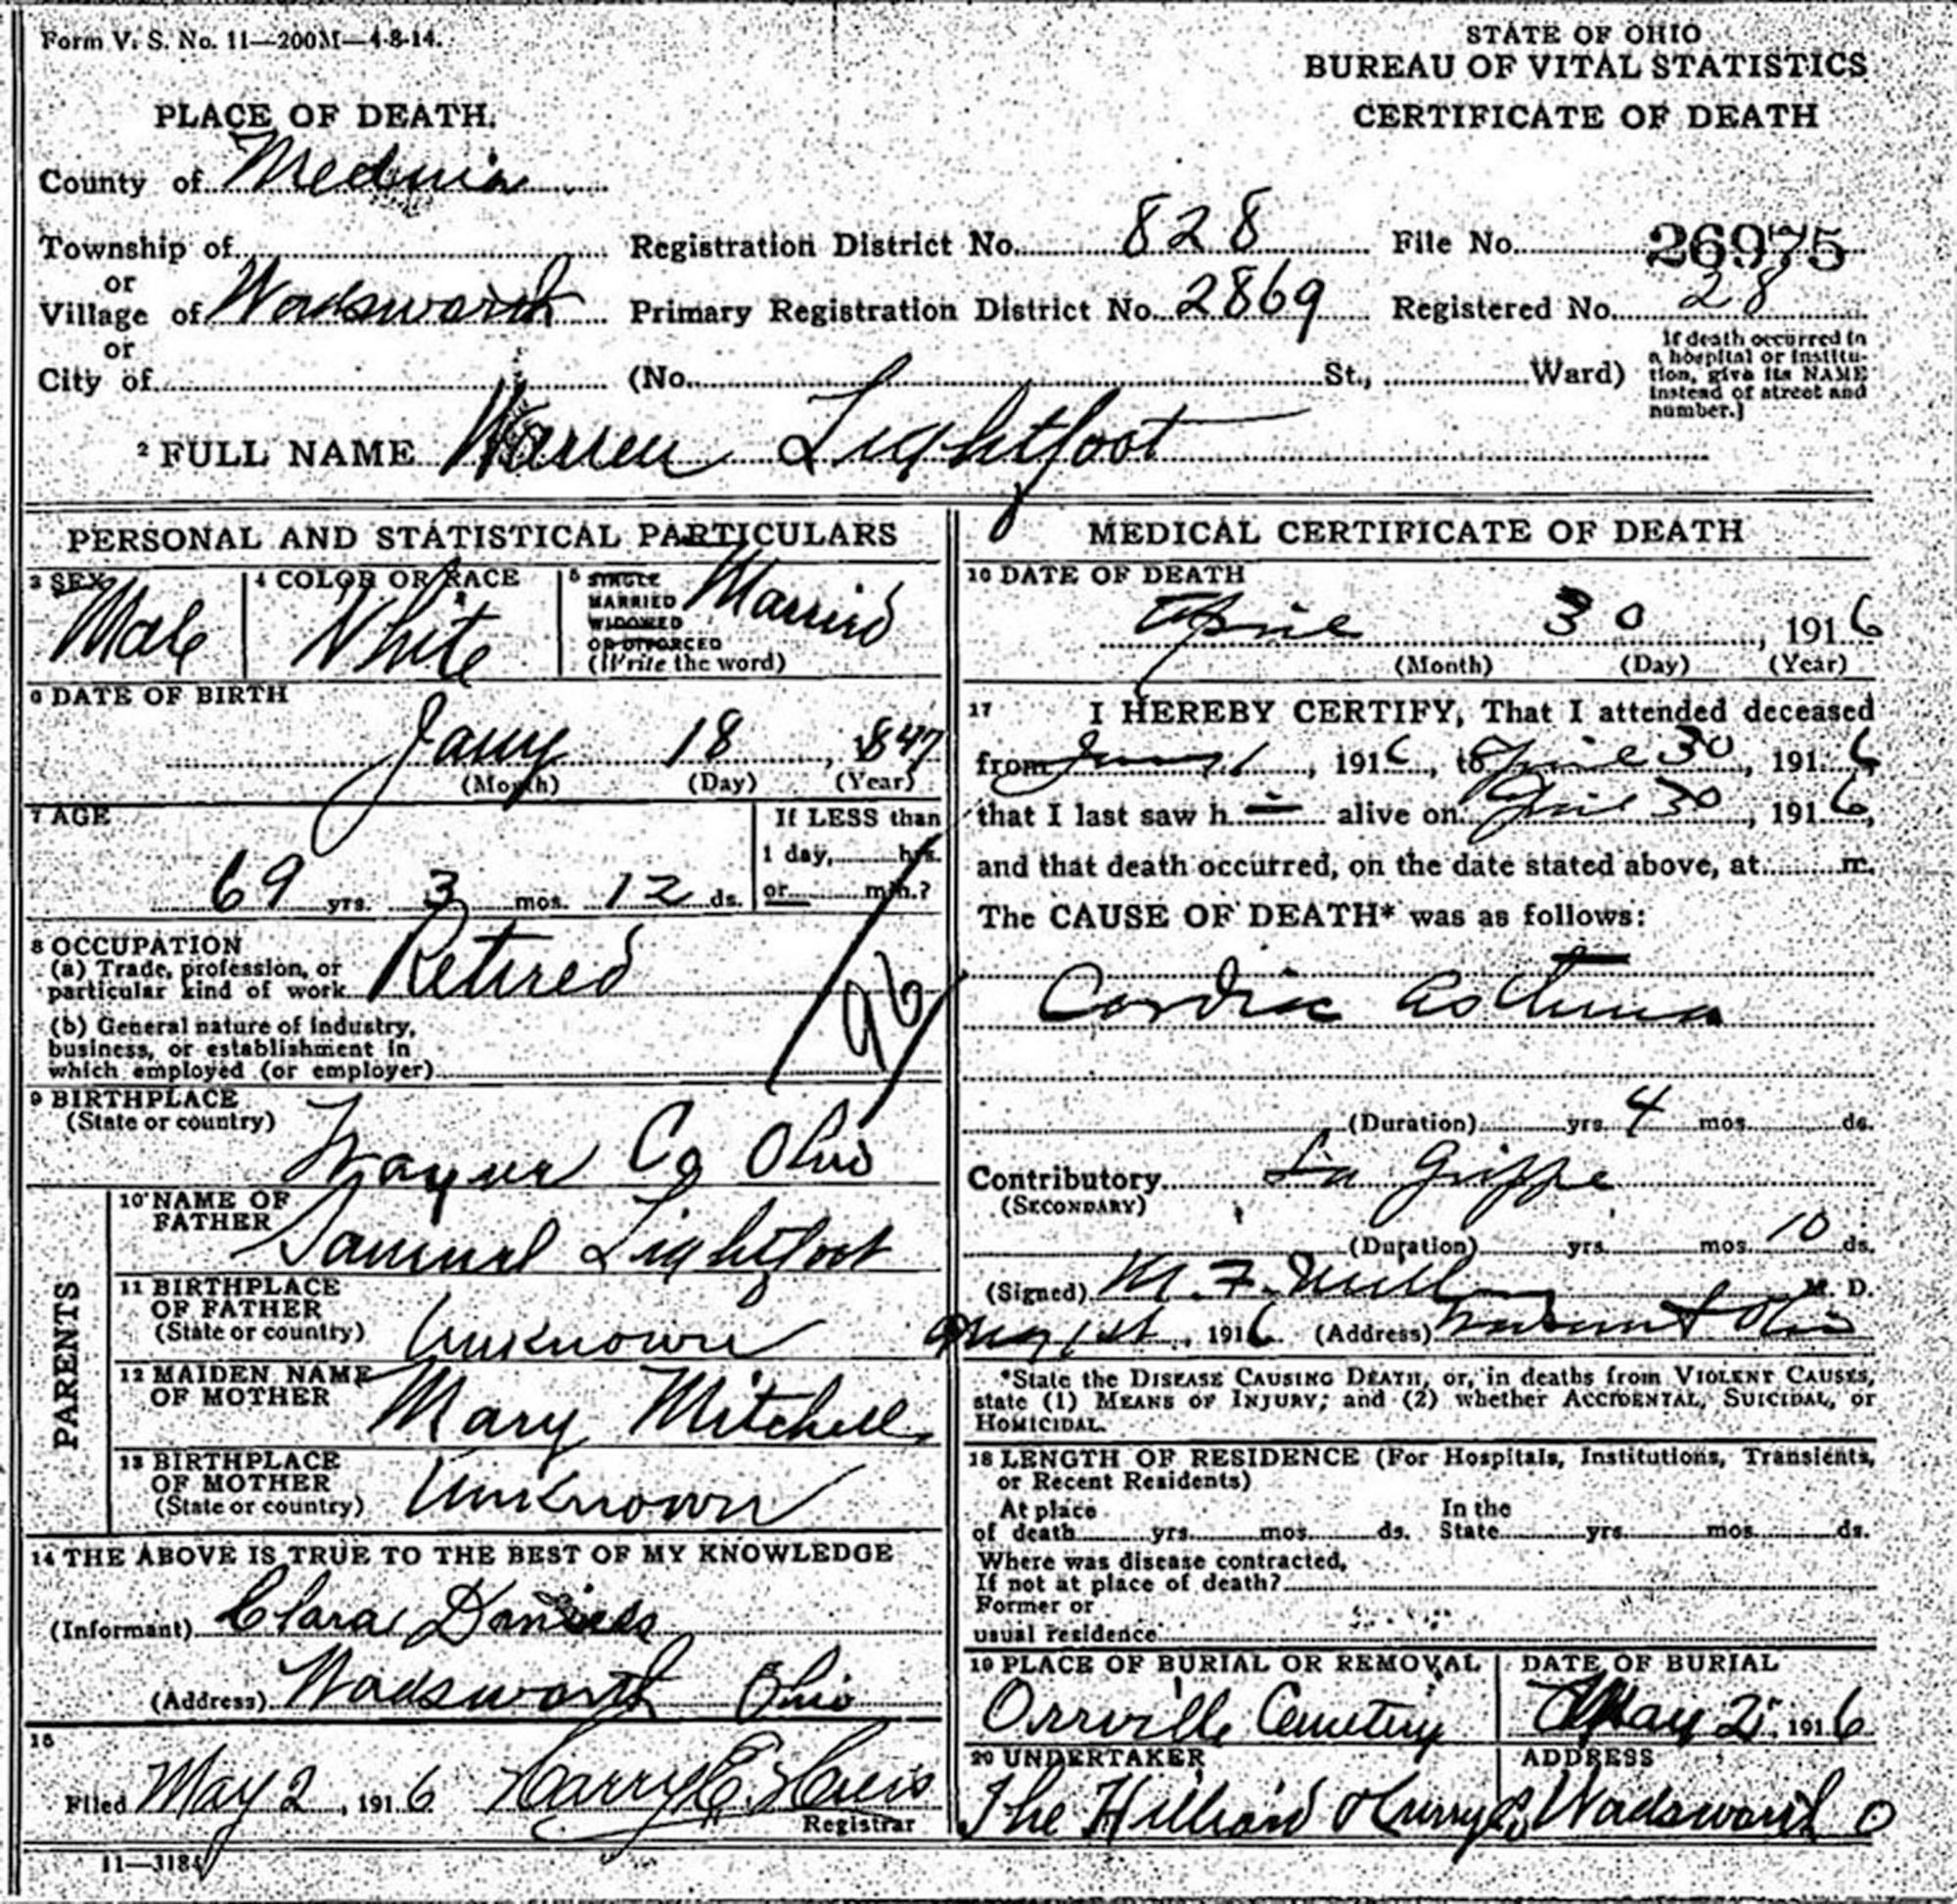 Form V. S. No. 11—200M—4-8-14.
STATE OF OHIO
BUREAU OF VITAL STATISTICS
CERTIFICATE OF DEATH
PLACE OF DEATH.
County of Medina
Township of
Registration District No. 828
File No. 26975
or
Village of Wadsworth
Primary Registration District No. 2869
Registered No. 28
or
City of
(No. St., Ward)
If death occurred in
a hospital or institu-
tion, give its NAME
instead of street and
number.]
2 FULL NAME Warren Lightfoot
PERSONAL AND STATISTICAL PARTICULARS
3 SEX
Male
4 COLOR OR RACE
White
5 SINGLE
MARRIED
WIDOWED
OR DIVORCED
(Write the word)
Married
6 DATE OF BIRTH
Jany 18, 1847
(Month) (Day) (Year)
7 AGE
69 yrs. 3 mos. 12 ds.
If LESS than
1 day, hrs.
or min.?
8 OCCUPATION
(a) Trade, profession, or
particular kind of work Retired
(b) General nature of industry,
business, or establishment in
which employed (or employer)
96
9 BIRTHPLACE
(State or country)
Wayne Co Ohio
PARENTS
10 NAME OF
FATHER
Samuel Lightfoot
11 BIRTHPLACE
OF FATHER
(State or country)
Unknown
12 MAIDEN NAME
OF MOTHER
Mary Mitchell
13 BIRTHPLACE
OF MOTHER
(State or country)
Unknown
14 THE ABOVE IS TRUE TO THE BEST OF MY KNOWLEDGE
(Informant) Clara Daniels
(Address) Wadsworth Ohio
15
Filed May 2, 1916 Harry E.
Registrar
11—3184
MEDICAL CERTIFICATE OF DEATH
16 DATE OF DEATH
April 30, 1916
(Month) (Day) (Year)
17 I HEREBY CERTIFY, That I attended deceased
from 1, 1916, to April 30, 1916
that I last saw h alive on April 30, 1916,
and that death occurred, on the date stated above, at m.
The CAUSE OF DEATH* was as follows:
Cardiac asthma
(Duration) yrs. 4 mos. ds.
Contributory La Grippe
(SECONDARY)
(Duration) yrs. mos. 10 ds.
(Signed) M. F. M. D.
May 1st, 1916 (Address) Ohio
*State the DISEASE CAUSING DEATH, or, in deaths from VIOLENT CAUSES,
state (1) MEANS OF INJURY; and (2) whether ACCIDENTAL, SUICIDAL, or
HOMICIDAL.
18 LENGTH OF RESIDENCE (For Hospitals, Institutions, Transients,
or Recent Residents)
At place
of death yrs. mos. ds.
In the
State yrs. mos. ds.
Where was disease contracted,
If not at place of death?
Former or
usual residence
19 PLACE OF BURIAL OR REMOVAL
Orrville Cemetery
DATE OF BURIAL
May 2, 1916
20 UNDERTAKER
The Hilliard
ADDRESS
Wadsworth O